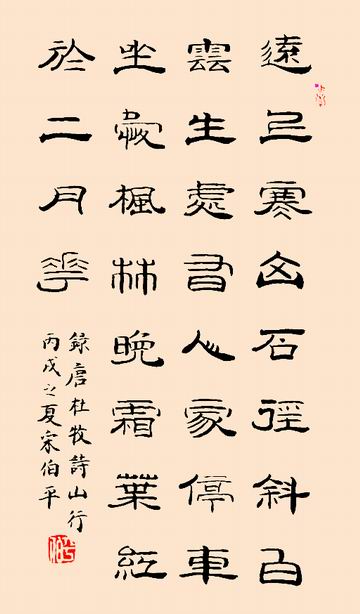 遠上寒山石徑斜白
雲生處有人家停車
坐愛楓林晚霜葉紅
於二月華
錄唐杜牧詩山行
丙戌之夏宋伯平